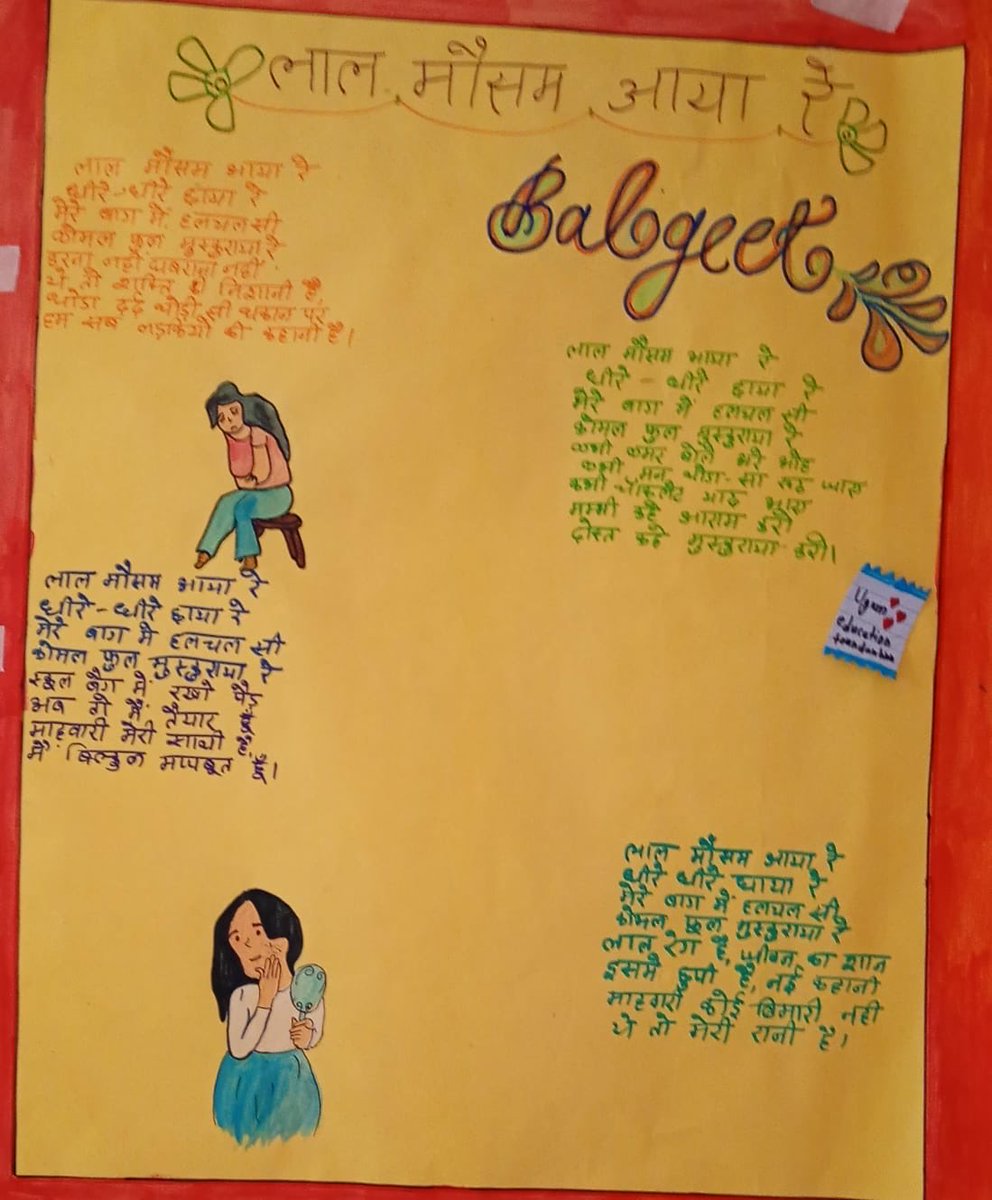 लाल मौसम आया रे
Balgeet
लाल मौसम आया रे
धीरे-धीरे छाया रे
मेरे बाग में हलचल सी
कोमल फुल मुस्कुराया रे
डरना नही घबराना नही
ये तो शक्ति की निशानी है,
थोडा दर्द थोड़ी सी थकान पर
हम सब लड़कियों की कहानी है।
लाल मौसम आया रे
धीरे - धीरे छाया रे
मेरे बाग में हलचल सी
कोमल फुल मुस्कुराया रे
कभी कमर बोले मोह
कभी मन थोडा-सा रूठ जाए
कभी चॉकलेट याद आए
मम्मी कहे आराम करो
दोस्त कहे मुस्कुराया करो।
लाल मौसम आया रे
धीरे-धीरे छाया रे
मेरे बाग मे हलचल सी
कोमल फुल मुस्कुराया रे
स्कूल बैग में रखो पैड
अब तो मैं तैयार हूँ
माहवारी मेरी साथी है,
मैं बिल्कुल मजबूत हूँ।
Ugam
education
foundation
लाल मौसम आया रे
धीरे धीरे छाया रे
मेरे बाग में हलचल सी
कोमल फुल मुस्कुराया रे
लाल रंग है, जीवन का शान
इसमे छुपी है, नई कहानी
माहवारी कोई बिमारी नही
ये तो मेरी रानी है।